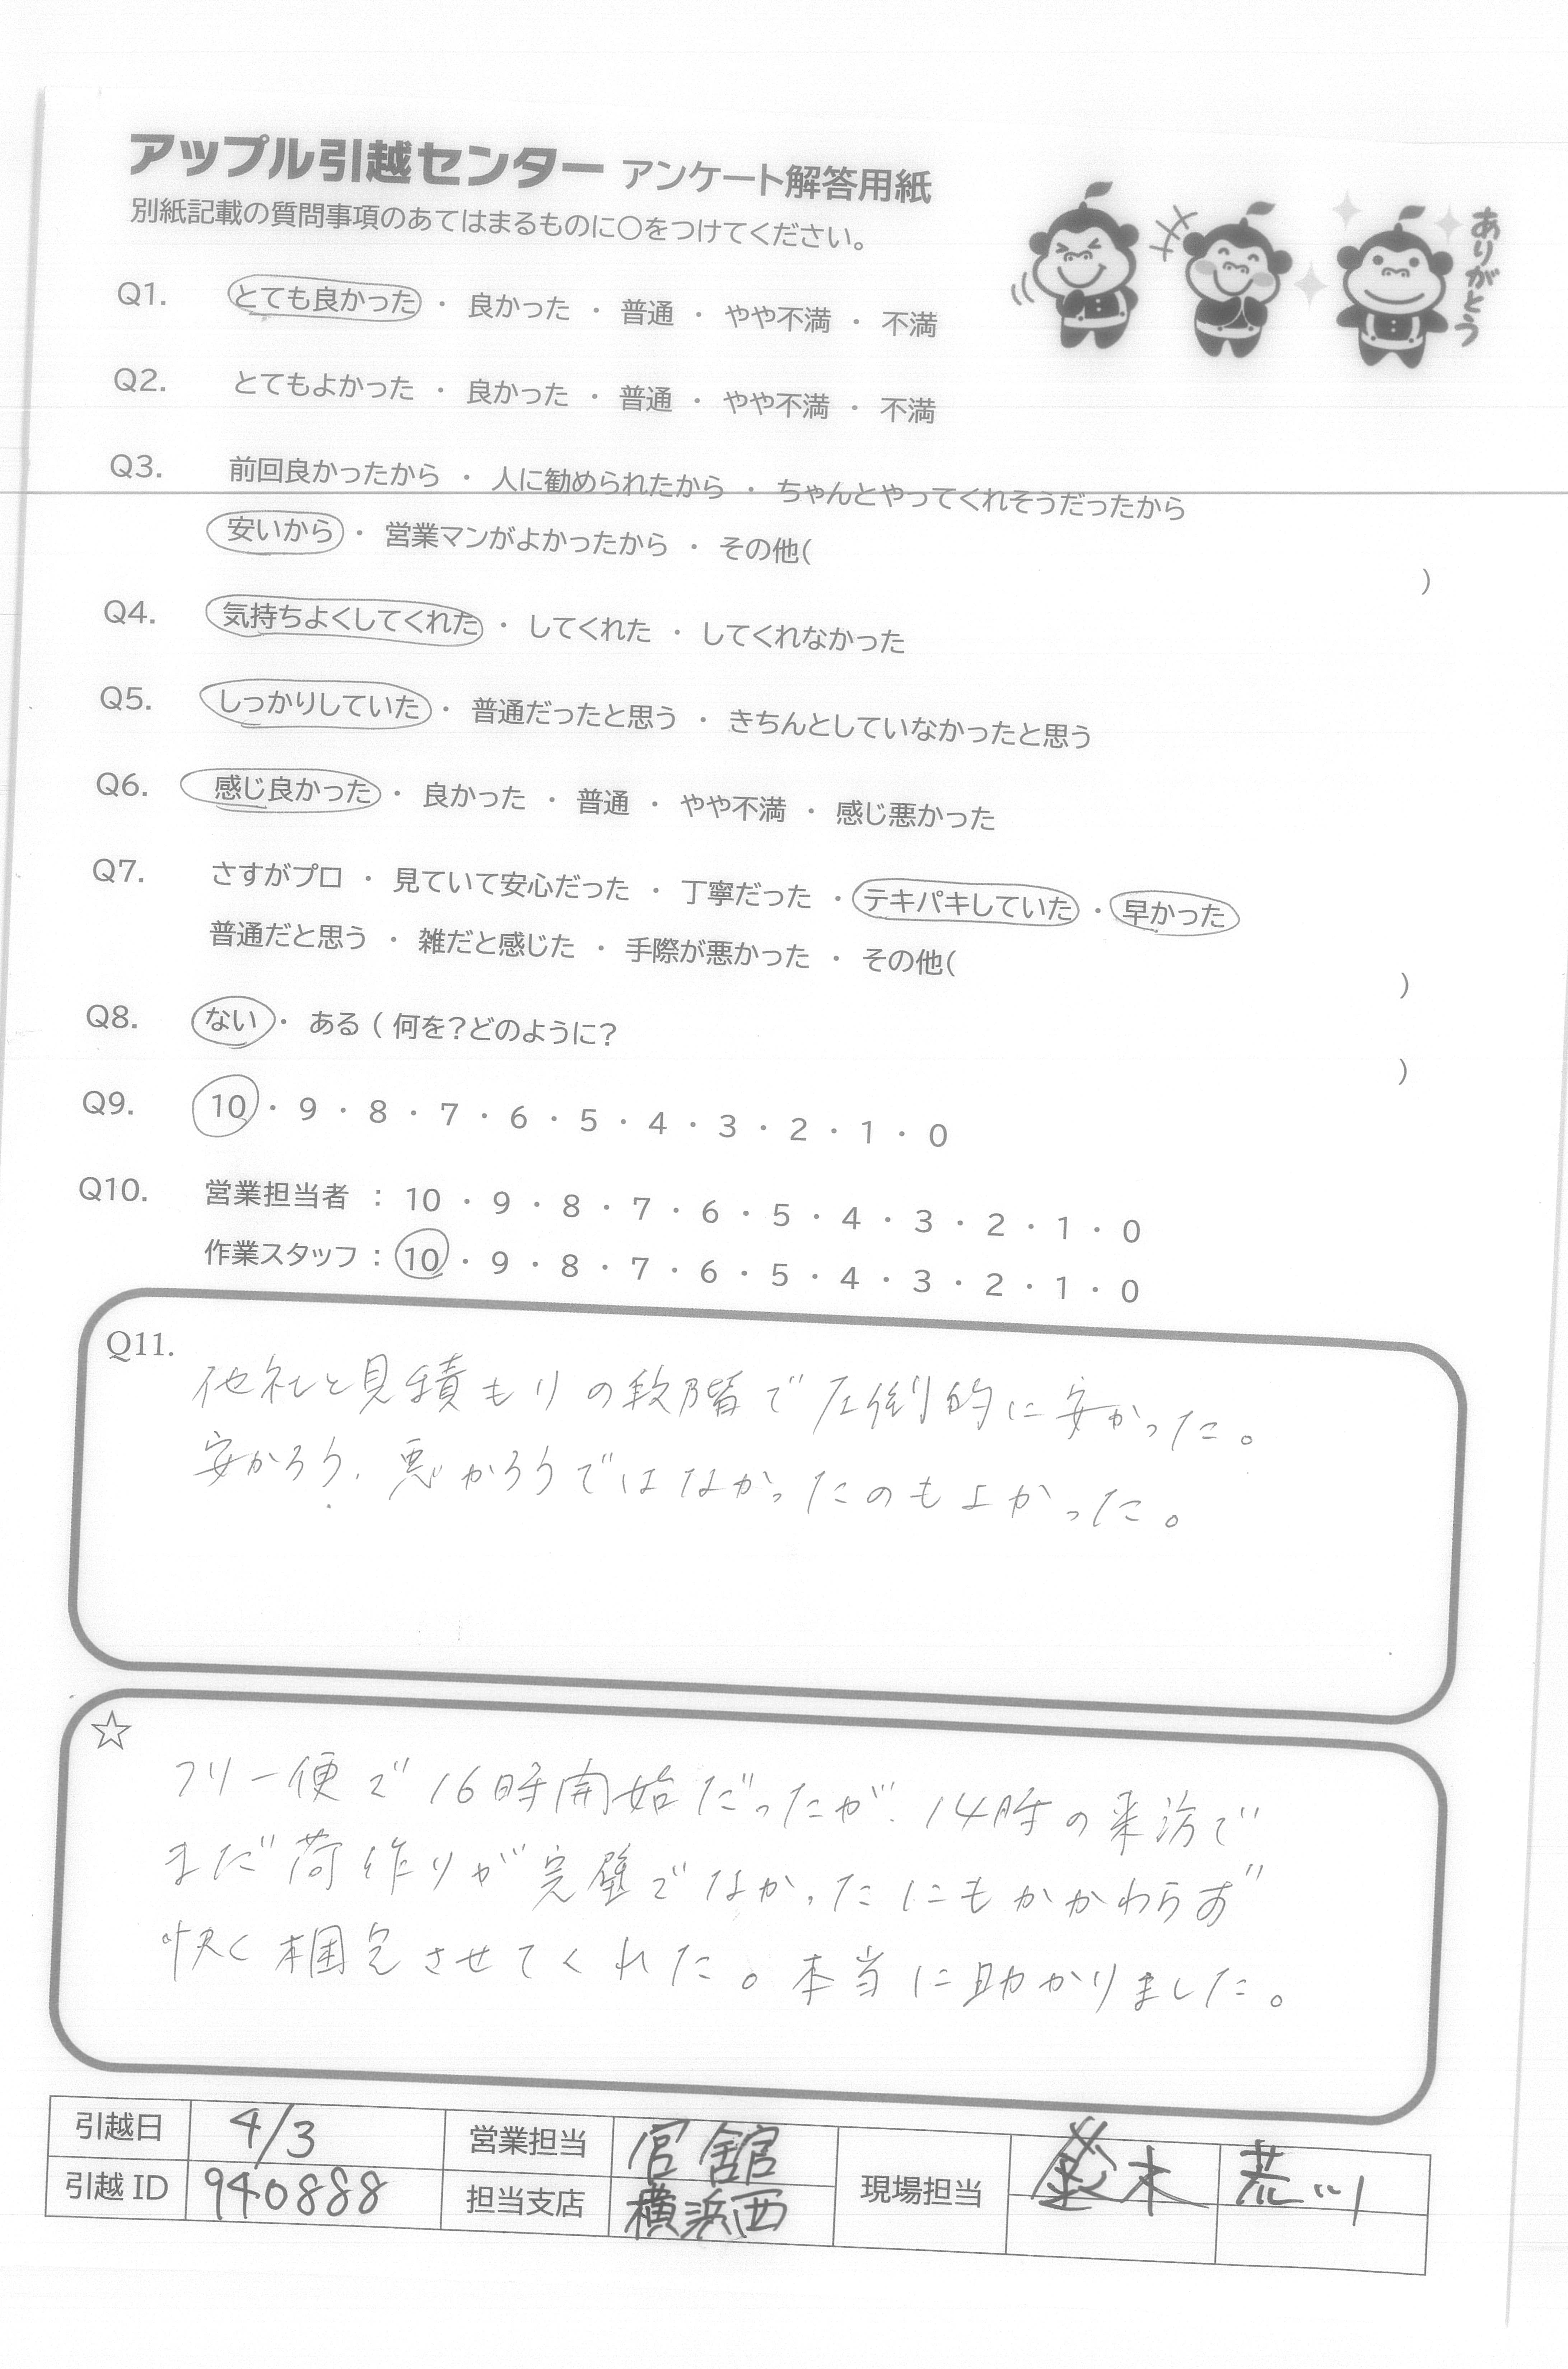 アップル引越センター アンケート解答用紙
別紙記載の質問事項のあてはまるものに〇をつけてください。
ありがとう
Q1. とても良かった ・ 良かった ・ 普通 ・ やや不満 ・ 不満
Q2. とてもよかった ・ 良かった ・ 普通 ・ やや不満 ・ 不満
Q3. 前回良かったから ・ 人に勧められたから ・ ちゃんとやってくれそうだったから
安いから ・ 営業マンがよかったから ・ その他( )
Q4. 気持ちよくしてくれた ・ してくれた ・ してくれなかった
Q5. しっかりしていた ・ 普通だったと思う ・ きちんとしていなかったと思う
Q6. 感じ良かった ・ 良かった ・ 普通 ・ やや不満 ・ 感じ悪かった
Q7. さすがプロ ・ 見ていて安心だった ・ 丁寧だった ・ テキパキしていた ・ 早かった
普通だと思う ・ 雑だと感じた ・ 手際が悪かった ・ その他( )
Q8. ない ・ ある ( 何を?どのように? )
Q9. 10 ・ 9 ・ 8 ・ 7 ・ 6 ・ 5 ・ 4 ・ 3 ・ 2 ・ 1 ・ 0
Q10. 営業担当者 : 10 ・ 9 ・ 8 ・ 7 ・ 6 ・ 5 ・ 4 ・ 3 ・ 2 ・ 1 ・ 0
作業スタッフ : 10 ・ 9 ・ 8 ・ 7 ・ 6 ・ 5 ・ 4 ・ 3 ・ 2 ・ 1 ・ 0
Q11.
他社と見積もりの段階で圧倒的に安かった。
安かろう、悪かろうではなかったのもよかった。
☆
フリー便で16時開始だったが、14時の来訪で
まだ荷作りが完璧でなかったにもかかわらず
快く梱包させてくれた。本当に助かりました。
引越日 4/3 営業担当 官舘 現場担当 鈴木 荒川
引越ID 940888 担当支店 横浜西